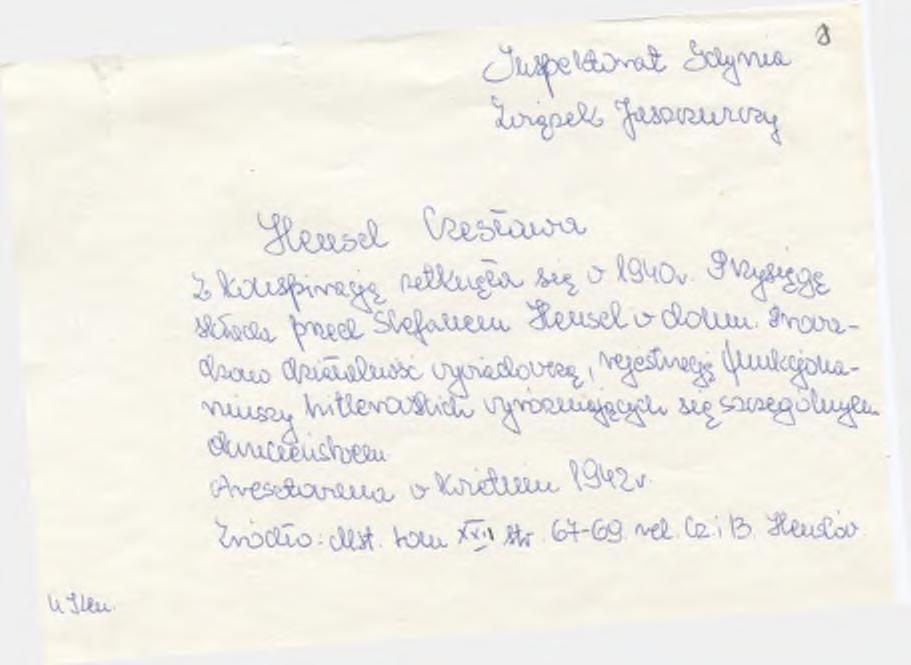 8
Inspektorat Gdynia
Związek Jaszczurczy
Hensel Czesława
Z konspiracją zetknęła się w 1940r. Przysięgę
składa przed Stefanem Hensel w domu. Prowa-
dzono działalność wywiadowczą, rejestrację funkcjona-
riuszy hitlerowskich wyróżniających się szczególnym
okrucieństwem
Aresztowana w kwietniu 1942r.
Źródło: Mst. tom XXII str. 67-69. rel. Cz. i B. Henslów